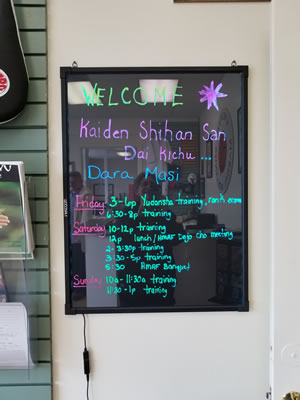 WELCOME
Kaiden Shihan San
Dai Kichu ...
Dara Masi
Friday 3-6p Yudansha training, rank exam
6:30-8p training
Saturday 10-12p training
12p lunch/HMAF Dojo Cho meeting
2-3:30p training
3:30-5p training
5:30 HMAF Banquet
Sunday 10a-11:30a training
11:30-1p training